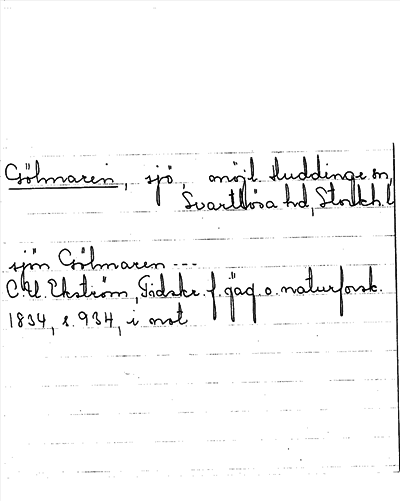 Gölmaren, sjö, möjl. Huddinge sn,
Svartlösa hd, Stockh.l
sjön Gölmaren ---
C.U. Ekström, Tidskr. f. jäg. o. naturforsk.
1834, s. 934, i not